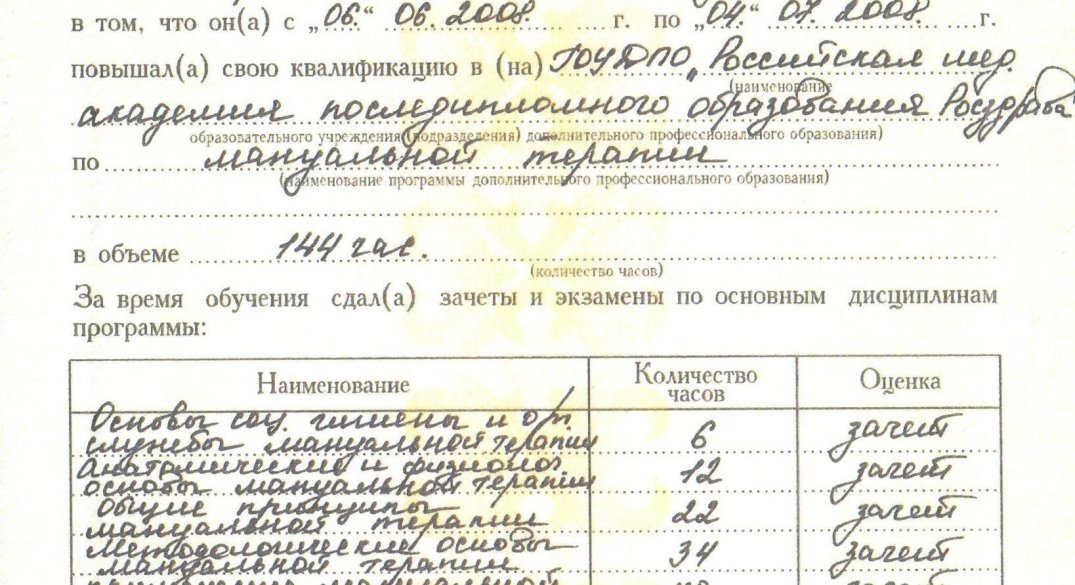 в том, что он(а) с „06.“ 06. 2008. г. по „04.“ 07. 2008. г.
повышал(а) свою квалификацию в (на) ГОУДПО „Российская мед.
(наименование
академия последипломного образования Росздрава"
образовательного учреждения (подразделения) дополнительного профессионального образования)
по мануальной терапии
(наименование программы дополнительного профессионального образования)
в объеме 144 час.
(количество часов)
За время обучения сдал(а) зачеты и экзамены по основным дисциплинам
программы:
Наименование Количество часов Оценка
Основы соц. гигиены и орг.
службы мануальной терапии 6 зачет
Анатомические и физиолог.
основы мануальной терапии 12 зачет
Общие принципы
мануальной терапии 22 зачет
Методологические основы
мануальной терапии 34 зачет
мануальной